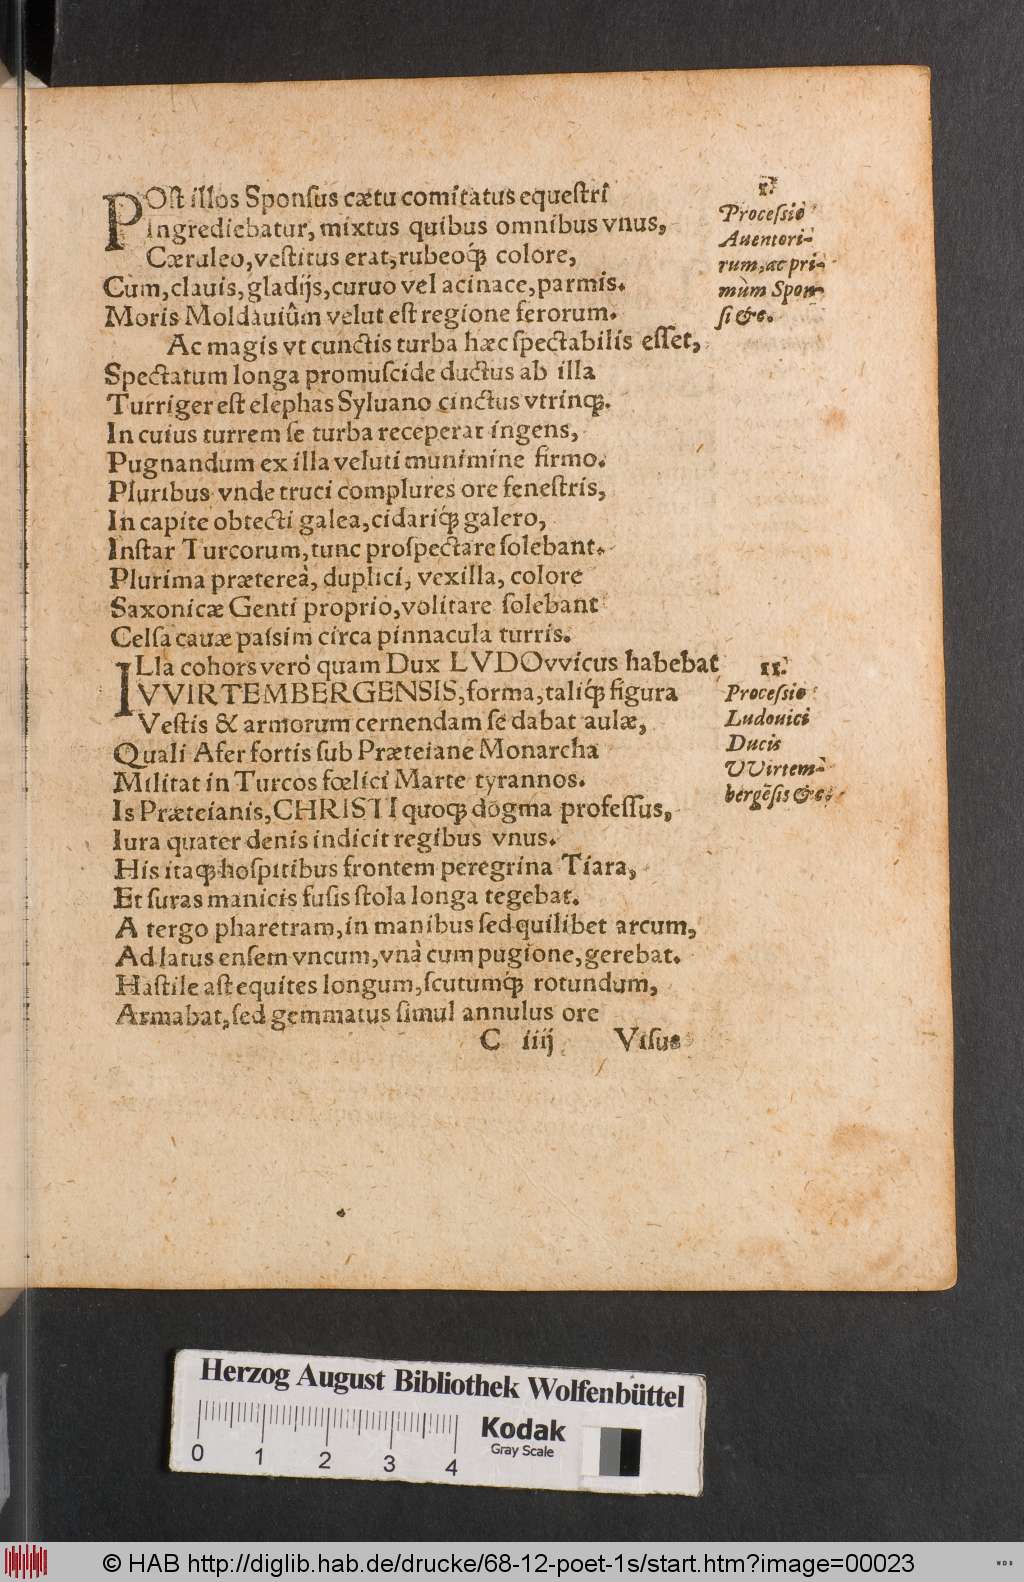 POſt illos Sponſus cætu comitatus equeſtri
Ingrediebatur, mixtus quibus omnibus vnus,
Cæruleo, veſtitus erat, rubeoq́; colore,
Cum, clauis, gladijs, curuo vel acinace, parmis.
Moris Moldauiûm velut eſt regione ferorum.
Ac magis vt cunctis turba hæc ſpectabilis eſſet,
Spectatum longa promuſcide ductus ab illa
Turriger eſt elephas Syluano cinctus vtrinq;.
In cuius turrem ſe turba receperat ingens,
Pugnandum ex illa veluti munimine firmo.
Pluribus vnde truci complures ore feneſtris,
In capite obtecti galea, cidariq́; galero,
Inſtar Turcorum, tunc proſpectare ſolebant.
Plurima prætereà, duplici, vexilla, colore
Saxonicæ Genti proprio, volitare ſolebant
Celſa cauæ paſsim circa pinnacula turris.
1.
Proceſsio
Auentori-
rum, ac pri-
mùm Spon-
ſi &c.
ILla cohors verò quam Dux LVDOvvicus habebat
VVIRTEMBERGENSIS, forma, taliq́; figura
Veſtis & armorum cernendam ſe dabat aulæ,
Quali Afer fortis ſub Præteiane Monarcha
Militat in Turcos fœlici Marte tyrannos.
Is Præteianis, CHRISTI quoq; dogma profeſſus,
Iura quater denis indicit regibus vnus.
His itaq; hoſpitibus frontem peregrina Tiara,
Et ſuras manicis fuſis ſtola longa tegebat.
A tergo pharetram, in manibus ſed quilibet arcum,
Ad latus enſem vncum, vnà cum pugione, gerebat.
Haſtile aſt equites longum, ſcutumq́; rotundum,
Armabat, ſed gemmatus ſimul annulus ore
11.
Proceſsio
Ludouici
Ducis
VVirtem-
bergēſis &c.
C iiij Viſus
Herzog August Bibliothek Wolfenbüttel
0 1 2 3 4
Kodak
Gray Scale
© HAB http://diglib.hab.de/drucke/68-12-poet-1s/start.htm?image=00023